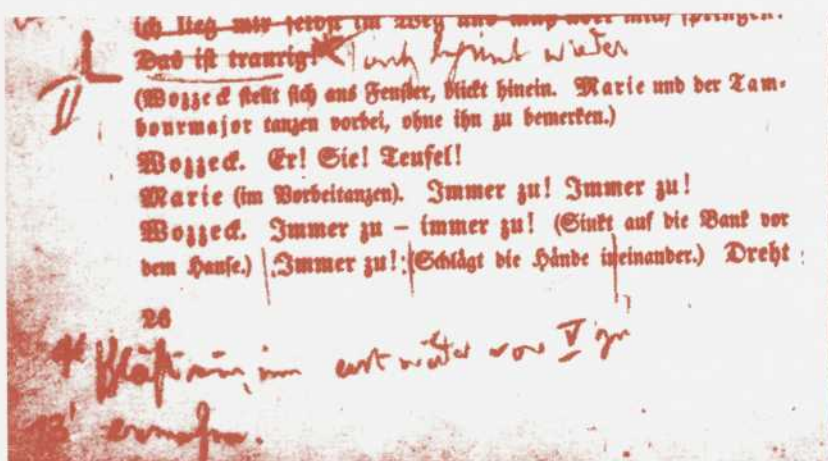 ich lieg mir selbst im Weg und muß über mich springen.
Das ist traurig! wieder
II
(Wozzeck stellt sich ans Fenster, blickt hinein. Marie und der Tam-
bourmajor tanzen vorbei, ohne ihn zu bemerken.)
Wozzeck. Er! Sie! Teufel!
Marie (im Vorbeitanzen). Immer zu! Immer zu!
Wozzeck. Immer zu – immer zu! (Sinkt auf die Bank vor
dem Hause.) Immer zu! (Schlägt die Hände ineinander.) Dreht
26
erst wieder vor V